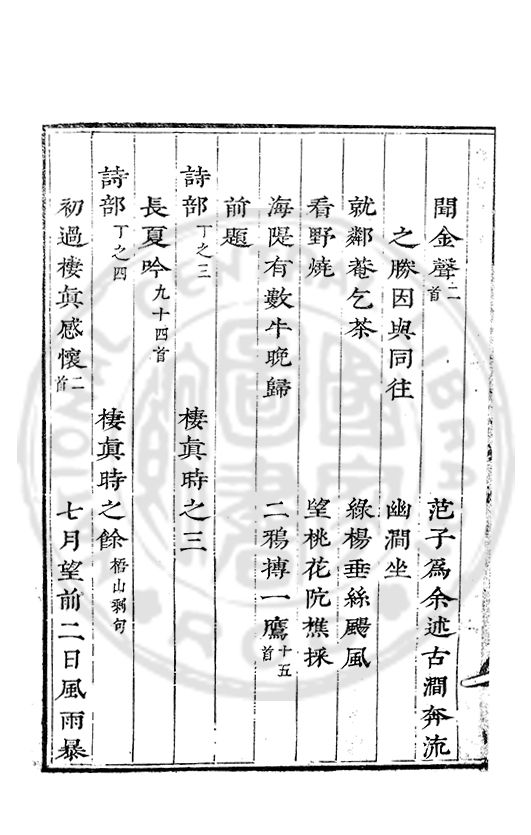 聞金聲二首　范子爲余述古澗奔流
之勝因與同往　幽澗坐
就鄰菴乞茶　綠楊垂絲颺風
看野燒　望桃花阬樵採
海隄有數牛晚歸　二鴉搏一鷹十五首
前題
詩部丁之三　棲眞時之三
長夏吟九十四首
詩部丁之四　棲眞時之餘梧山剩句
初過棲眞感懷二首　七月望前二日風雨暴